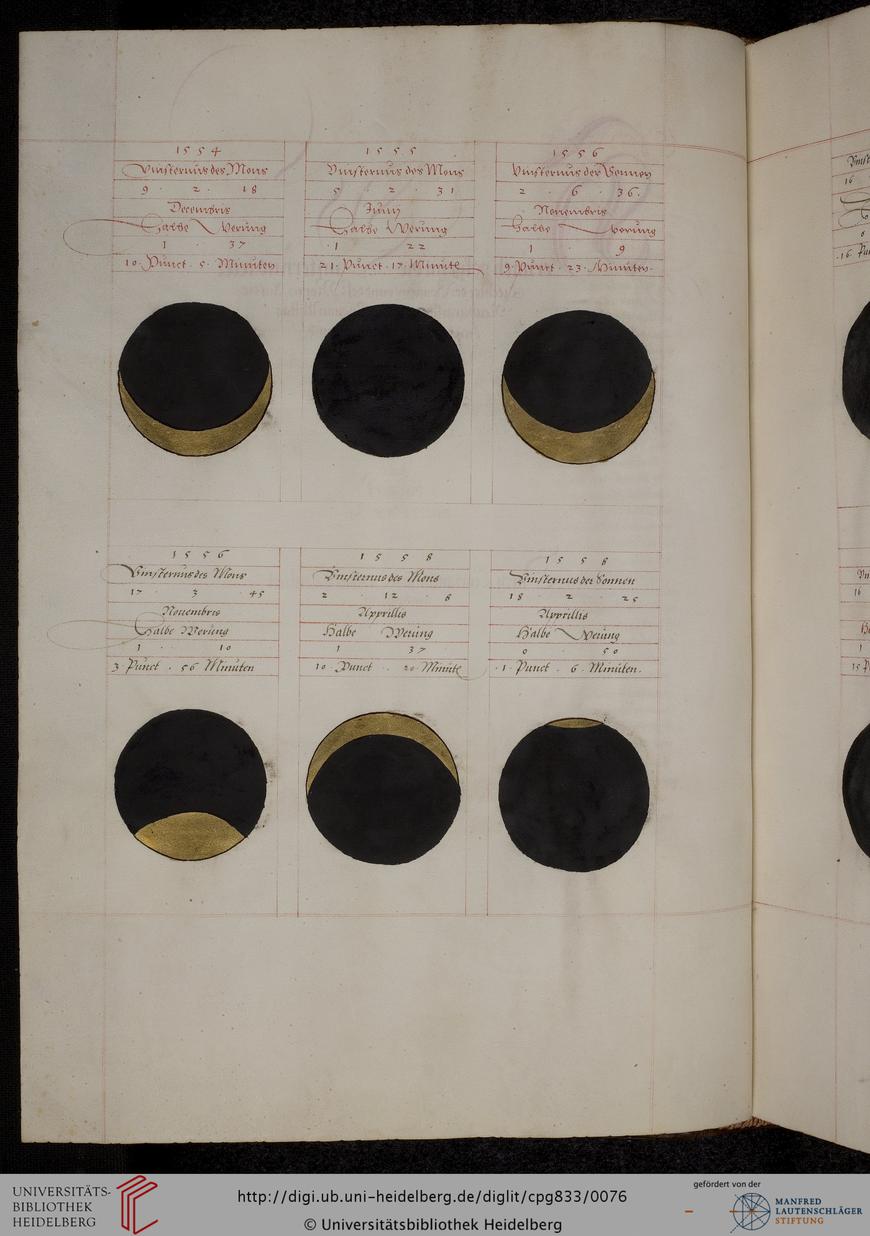 1 5 5 4
Vinsternus des Mons
9 · 2 · 18
Decembris
Halbe Werung
1 · 37
10 · Punct · 5 · Minuten
1 5 5 5
Vinsternus des Mons
5 · 2 · 31
Junÿ
Halbe Werung
1 22
21 · Punct · 17 Minute
1 5 5 6
Vinsternus der Sonnen
2 · 6 · 36 ·
Nouembris
Halbe Werung
1 · 9
9 · Punct · 23 · Minuten ·
1 5 5 6
Vinsternus des Mons
17 · 3 · 45
Nouembris
Halbe Werung
1 · 10
3 · Punct · 56 Minuten
1 5 5 8
Vinsternus des Mons
2 · 12 · 8
Apprillis
Halbe Werung
1 37 ·
10 · Punct · 20 · Minute
1 5 5 8
Vinsternus der Sonnen
18 · 2 · 25
Apprillis
Halbe Werung
0 · 50
· 1 · Punct · 6 · Minuten ·
16
16
15
UNIVERSITÄTS-
BIBLIOTHEK
HEIDELBERG
http://digi.ub.uni-heidelberg.de/diglit/cpg833/0076
© Universitätsbibliothek Heidelberg
gefördert von der
MANFRED
LAUTENSCHLÄGER
STIFTUNG